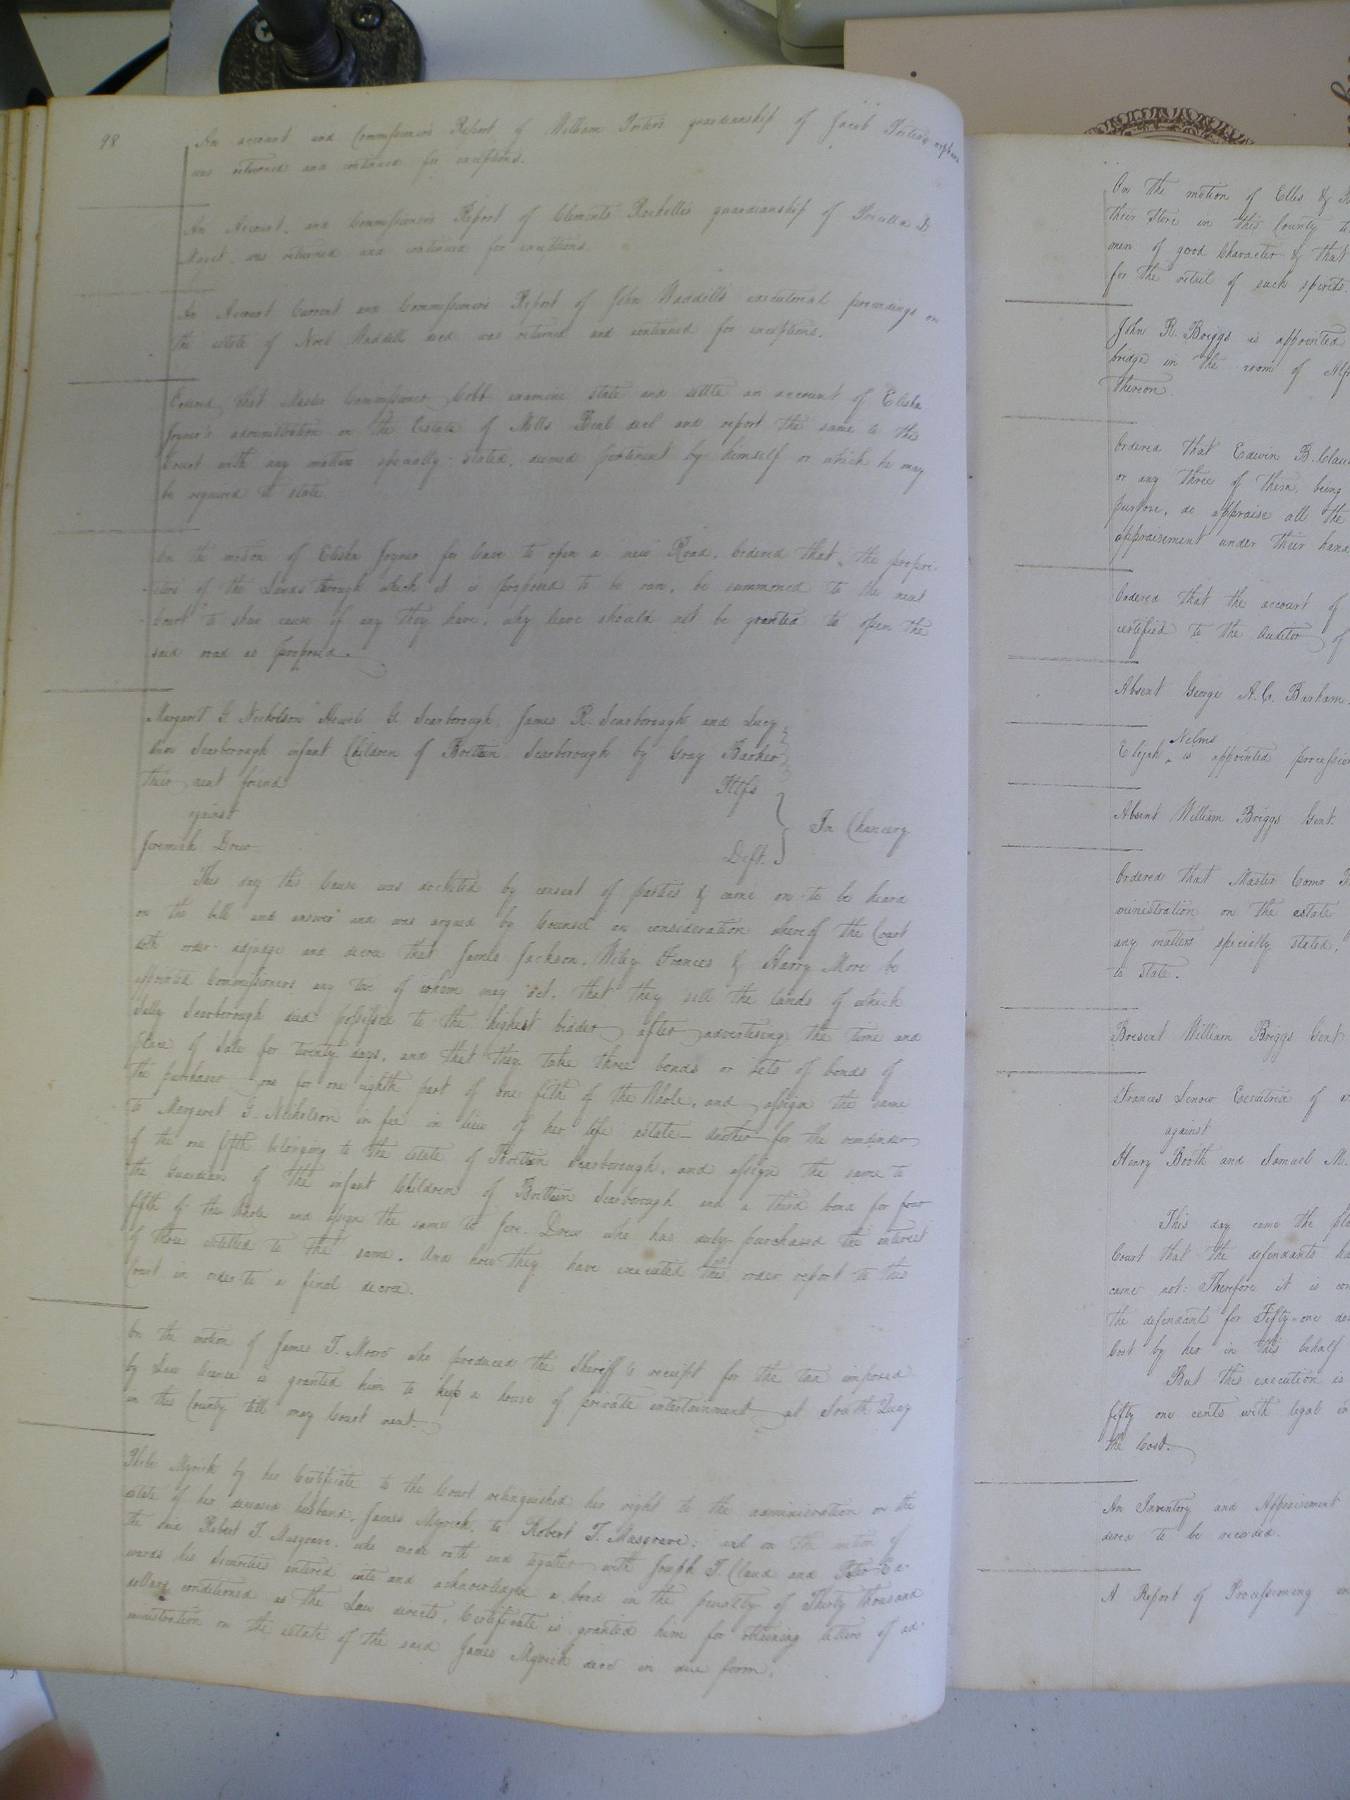 98
An account and Commissioners Report of William Porter's guardianship of Jacob Porter's orphans
was returned and continued for exceptions.
An Account, and Commissioners Report of Clements Rochelle's guardianship of
was returned and continued for exceptions.
An Account Current and Commissioners Report of John Waddell's executorial proceedings on
the estate of Noel Waddell decd was returned and continued for exceptions.
Ordered that Master Commissioner Cobb examine state and settle an account of Elisha
Joyner's administration on the Estate of Mills Beal decd and report the same to this
Court with any matters specially stated, deemed pertinent by himself or which he may
be required to state.
On the motion of Elisha Joyner for leave to open a new Road, Ordered that the propri-
etors of the Lands through which it is proposed to be run, be summoned to the next
Court to shew cause if any they have, why leave should not be granted to open the
said road as proposed.
Margaret G. Nicholson Newit G. Scarborough, James R. Scarborough and Lucy
Ann Scarborough infant Children of Brittain Scarborough by Gray Barker
their next friend Pltfs
against In Chancery
Jeremiah Drew Deft.
This day this Cause was docketed by consent of parties & came on to be heard
on the bill and answer and was argued by Counsel on consideration whereof the Court
doth order adjudge and decree that James Jackson, Wiley Frances & Harry More be
appointed Commissioners any two of whom may act, that they sell the lands of which
Sally Scarborough died possessed to the highest bidder after advertising the time and
place of sale for twenty days, and that they take three bonds or sets of bonds of
the purchaser one for one eighth part of one fifth of the Whole, and assign the same
to Margaret G. Nicholson in fee in lieu of her life estate another for the remainder
of the one fifth belonging to the estate of Brittain Scarborough, and assign the same to
the Guardian of the infant Children of Brittain Scarborough and a third bond for four
fifth of the Whole and assign the same to Jere. Drew who has duly purchased the interest
of those entitled to the same. And how they have executed this order report to this
Court in order to a final decree.
On the motion of James T. Moore who produced the Sheriff's receipt for the tax imposed
by Law license is granted him to keep a house of private entertainment at South Quay
in this County till may Court next.
Phebe Myrick by her Certificate to the Court relinquished her right to the administration on the
estate of her deceased husband, James Myrick, to Robert T. Musgrave; and on the motion of
the said Robert T. Musgrave, who made oath and together with Joseph T. Claud and Peter Ed-
wards his Securities entered into and acknowledged a bond in the penalty of Thirty thousand
dollars conditioned as the Law directs, Certificate is granted him for obtaining letters of ad-
ministration on the estate of the said James Myrick decd in due form.
On the motion of Ellis &
their Store in this County to
men of good Character & that
for the retail of such spirits.
John R. Briggs is appointed
bridge in the room of
thereon.
Ordered that Edwin B.
or any three of them, being
purpose, do appraise all the
appraisement under their
Ordered that the account of
certified to the Auditor of
Absent George A. C. Barham.
Nelms
Elijah ‸ is appointed
Absent William Briggs Gent.
Ordered that Master Comr
ministration on the estate
any matters specially stated,
to state.
Present William Briggs Gent
Frances Lenow Executrix of
against
Henry Booth and Samuel M.
This day came the
Court that the defendants
came not: Therefore it is
the defendants for Fifty-one
Cost by her in this behalf
But this execution is
fifty one cents with legal
the Cost.
An Inventory and Appraisement
decd to be recorded.
A Report of Processioning